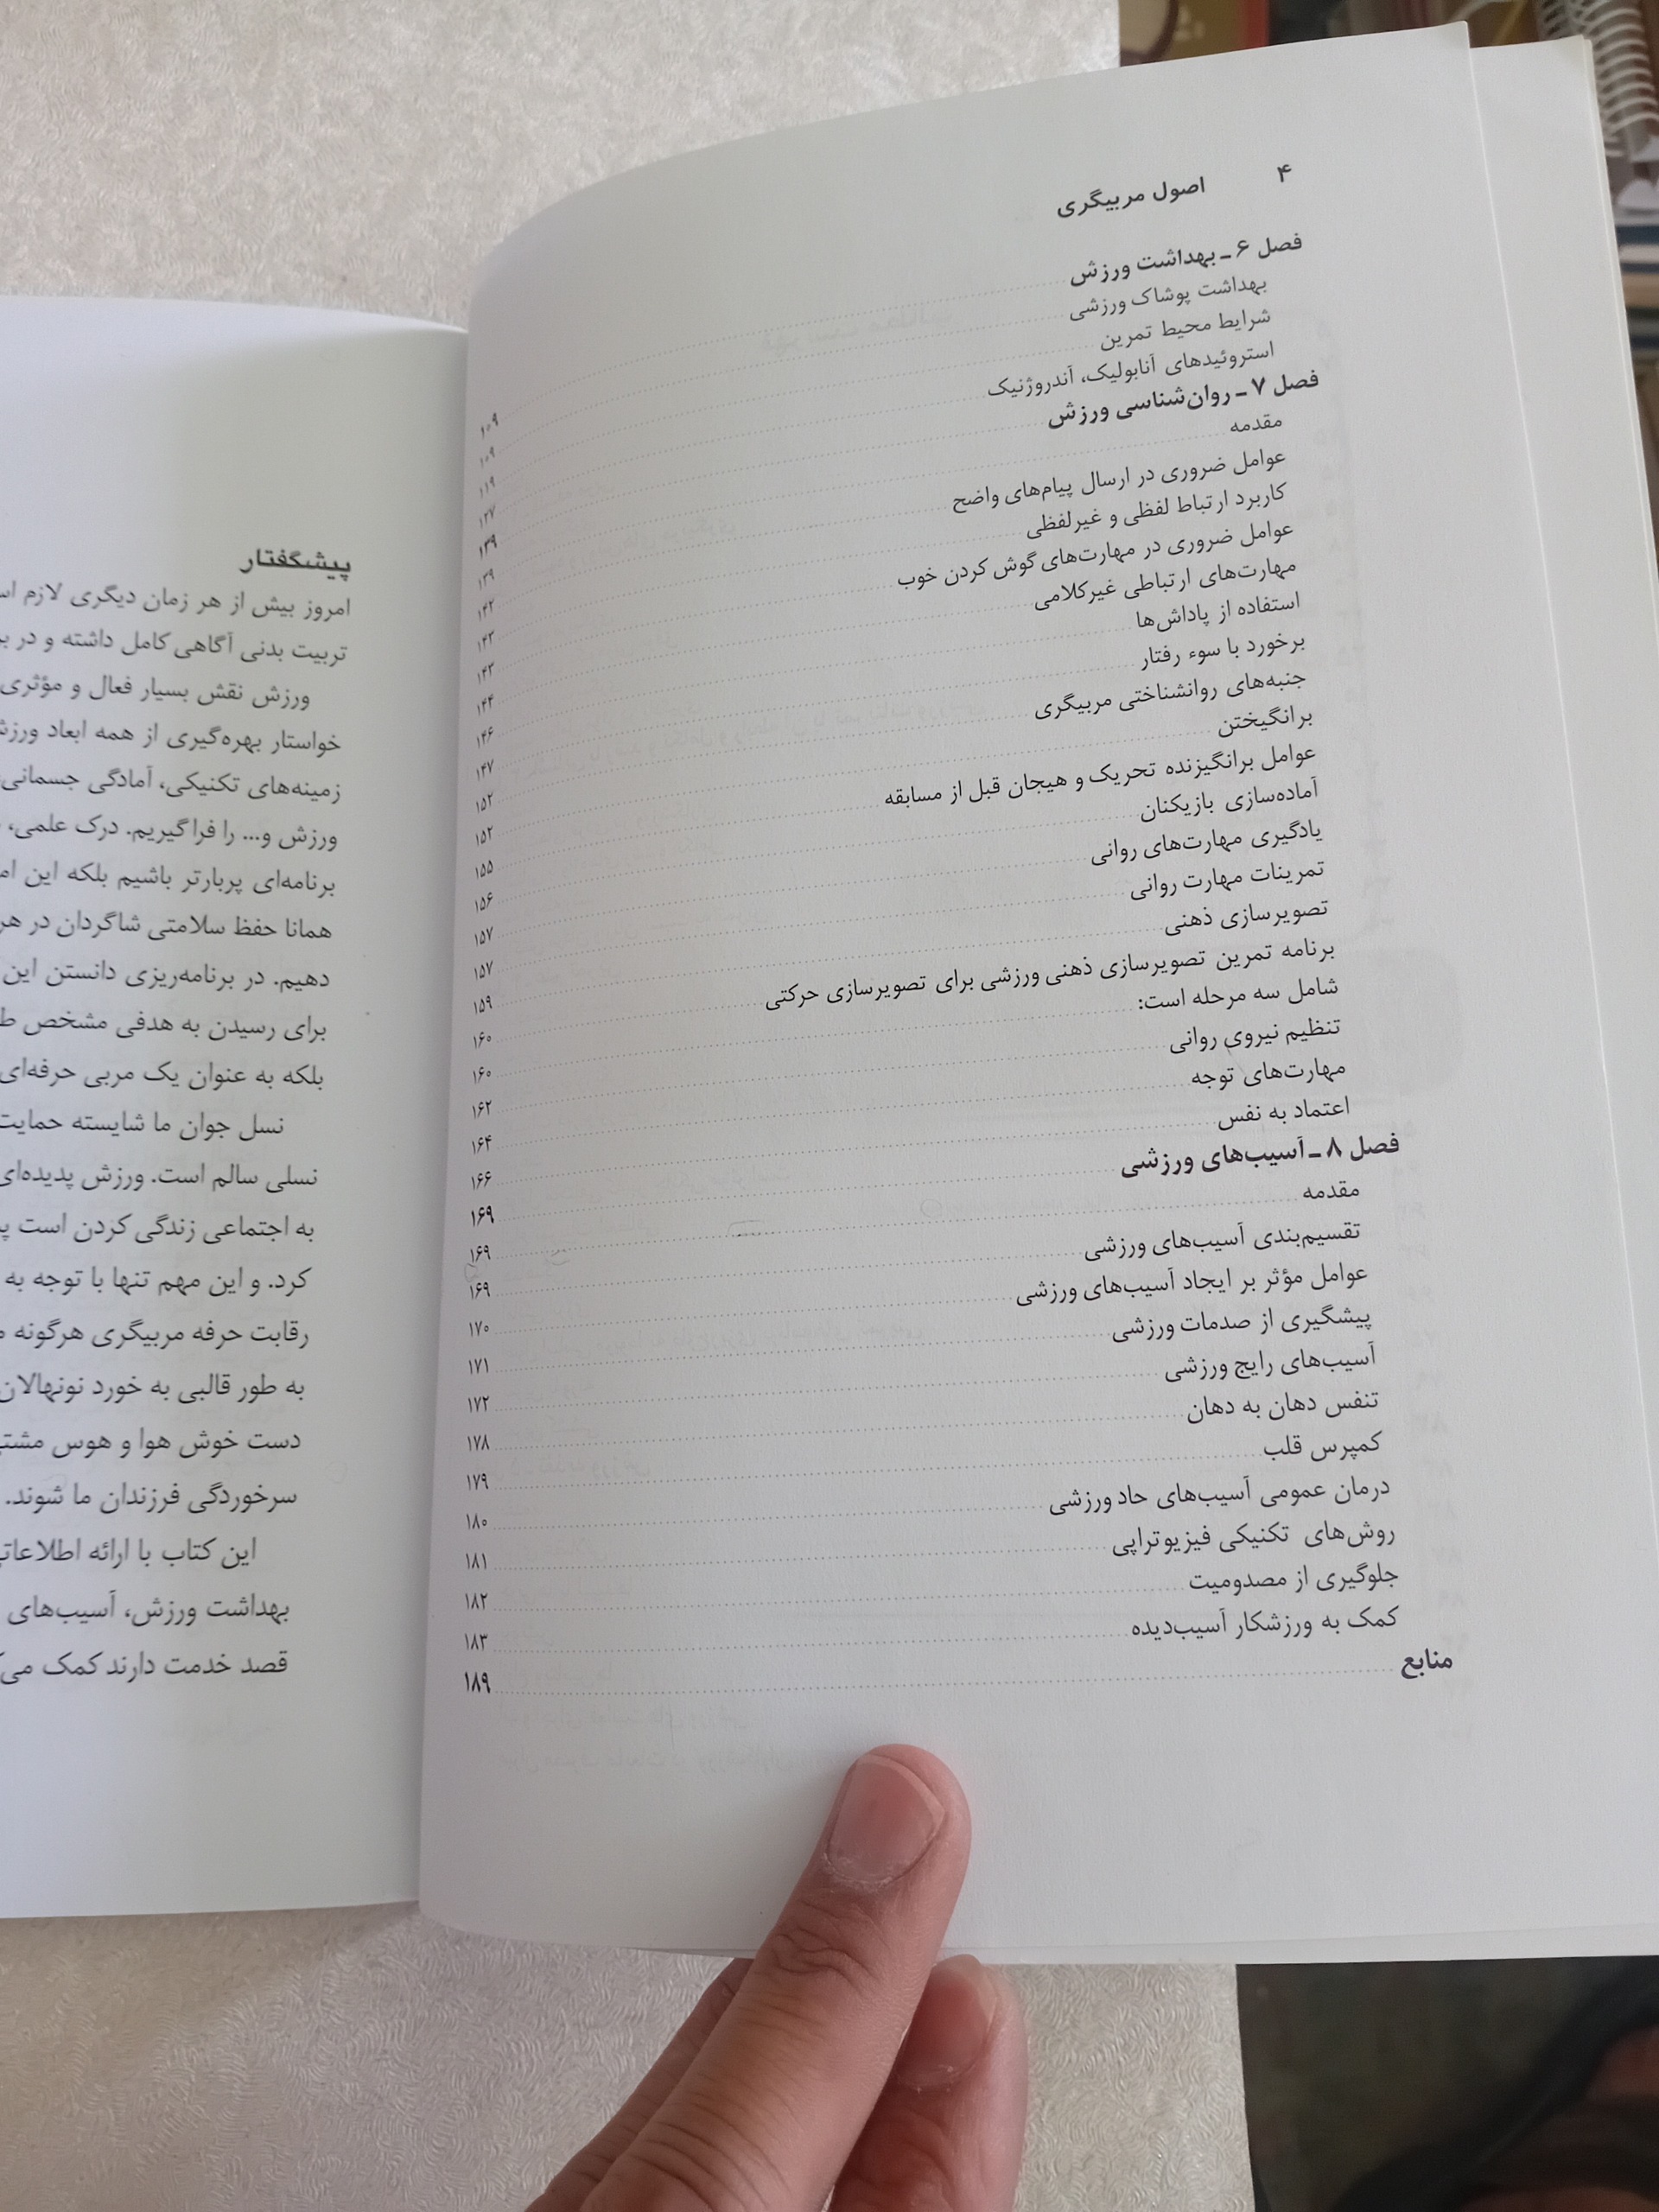 ۴ اصول مربیگری
فصل ۶ ـ بهداشت ورزش ........ ۱۰۹
بهداشت پوشاک ورزشی ........ ۱۰۹
شرایط محیط تمرین ........ ۱۱۹
استروئیدهای آنابولیک، آندروژنیک ........ ۱۲۷
فصل ۷ ـ روان‌شناسی ورزش ........ ۱۳۹
مقدمه ........ ۱۳۹
عوامل ضروری در ارسال پیام‌های واضح ........ ۱۴۲
کاربرد ارتباط لفظی و غیرلفظی ........ ۱۴۳
عوامل ضروری در مهارت‌های گوش کردن خوب ........ ۱۴۳
مهارت‌های ارتباطی غیرکلامی ........ ۱۴۴
استفاده از پاداش‌ها ........ ۱۴۶
برخورد با سوء رفتار ........ ۱۴۷
جنبه‌های روانشناختی مربیگری ........ ۱۵۲
برانگیختن ........ ۱۵۲
عوامل برانگیزنده تحریک و هیجان قبل از مسابقه ........ ۱۵۵
آماده‌سازی بازیکنان ........ ۱۵۶
یادگیری مهارت‌های روانی ........ ۱۵۷
تمرینات مهارت روانی ........ ۱۵۷
تصویرسازی ذهنی ........ ۱۵۹
برنامه تمرین تصویرسازی ذهنی ورزشی برای تصویرسازی حرکتی ........ ۱۶۰
شامل سه مرحله است: ........ ۱۶۰
تنظیم نیروی روانی ........ ۱۶۲
مهارت‌های توجه ........ ۱۶۴
اعتماد به نفس ........ ۱۶۶
فصل ۸ ـ آسیب‌های ورزشی ........ ۱۶۹
مقدمه ........ ۱۶۹
تقسیم‌بندی آسیب‌های ورزشی ........ ۱۶۹
عوامل مؤثر بر ایجاد آسیب‌های ورزشی ........ ۱۷۰
پیشگیری از صدمات ورزشی ........ ۱۷۱
آسیب‌های رایج ورزشی ........ ۱۷۲
تنفس دهان به دهان ........ ۱۷۸
کمپرس قلب ........ ۱۷۹
درمان عمومی آسیب‌های حاد ورزشی ........ ۱۸۰
روش‌های تکنیکی فیزیوتراپی ........ ۱۸۱
جلوگیری از مصدومیت ........ ۱۸۲
کمک به ورزشکار آسیب‌دیده ........ ۱۸۳
منابع ........ ۱۸۹
پیشگفتار
امروز بیش از هر زمان دیگری لازم
تربیت بدنی آگاهی کامل داشته و در
ورزش نقش بسیار فعال و مؤثری
خواستار بهره‌گیری از همه ابعاد
زمینه‌های تکنیکی، آمادگی جسمانی
ورزش و... را فراگیریم. درک علمی،
برنامه‌ای پربارتر باشیم بلکه این
همانا حفظ سلامتی شاگردان در هر
دهیم. در برنامه‌ریزی دانستن این
برای رسیدن به هدفی مشخص
بلکه به عنوان یک مربی حرفه‌ای
نسل جوان ما شایسته حمایت
نسلی سالم است. ورزش پدیده‌ای
به اجتماعی زندگی کردن است
کرد. و این مهم تنها با توجه به
رقابت حرفه مربیگری هرگونه
به طور قالبی به خورد نونهالان
دست خوش هوا و هوس
سرخوردگی فرزندان ما شوند.
این کتاب با ارائه
بهداشت ورزش، آسیب‌های
قصد خدمت دارند کمک